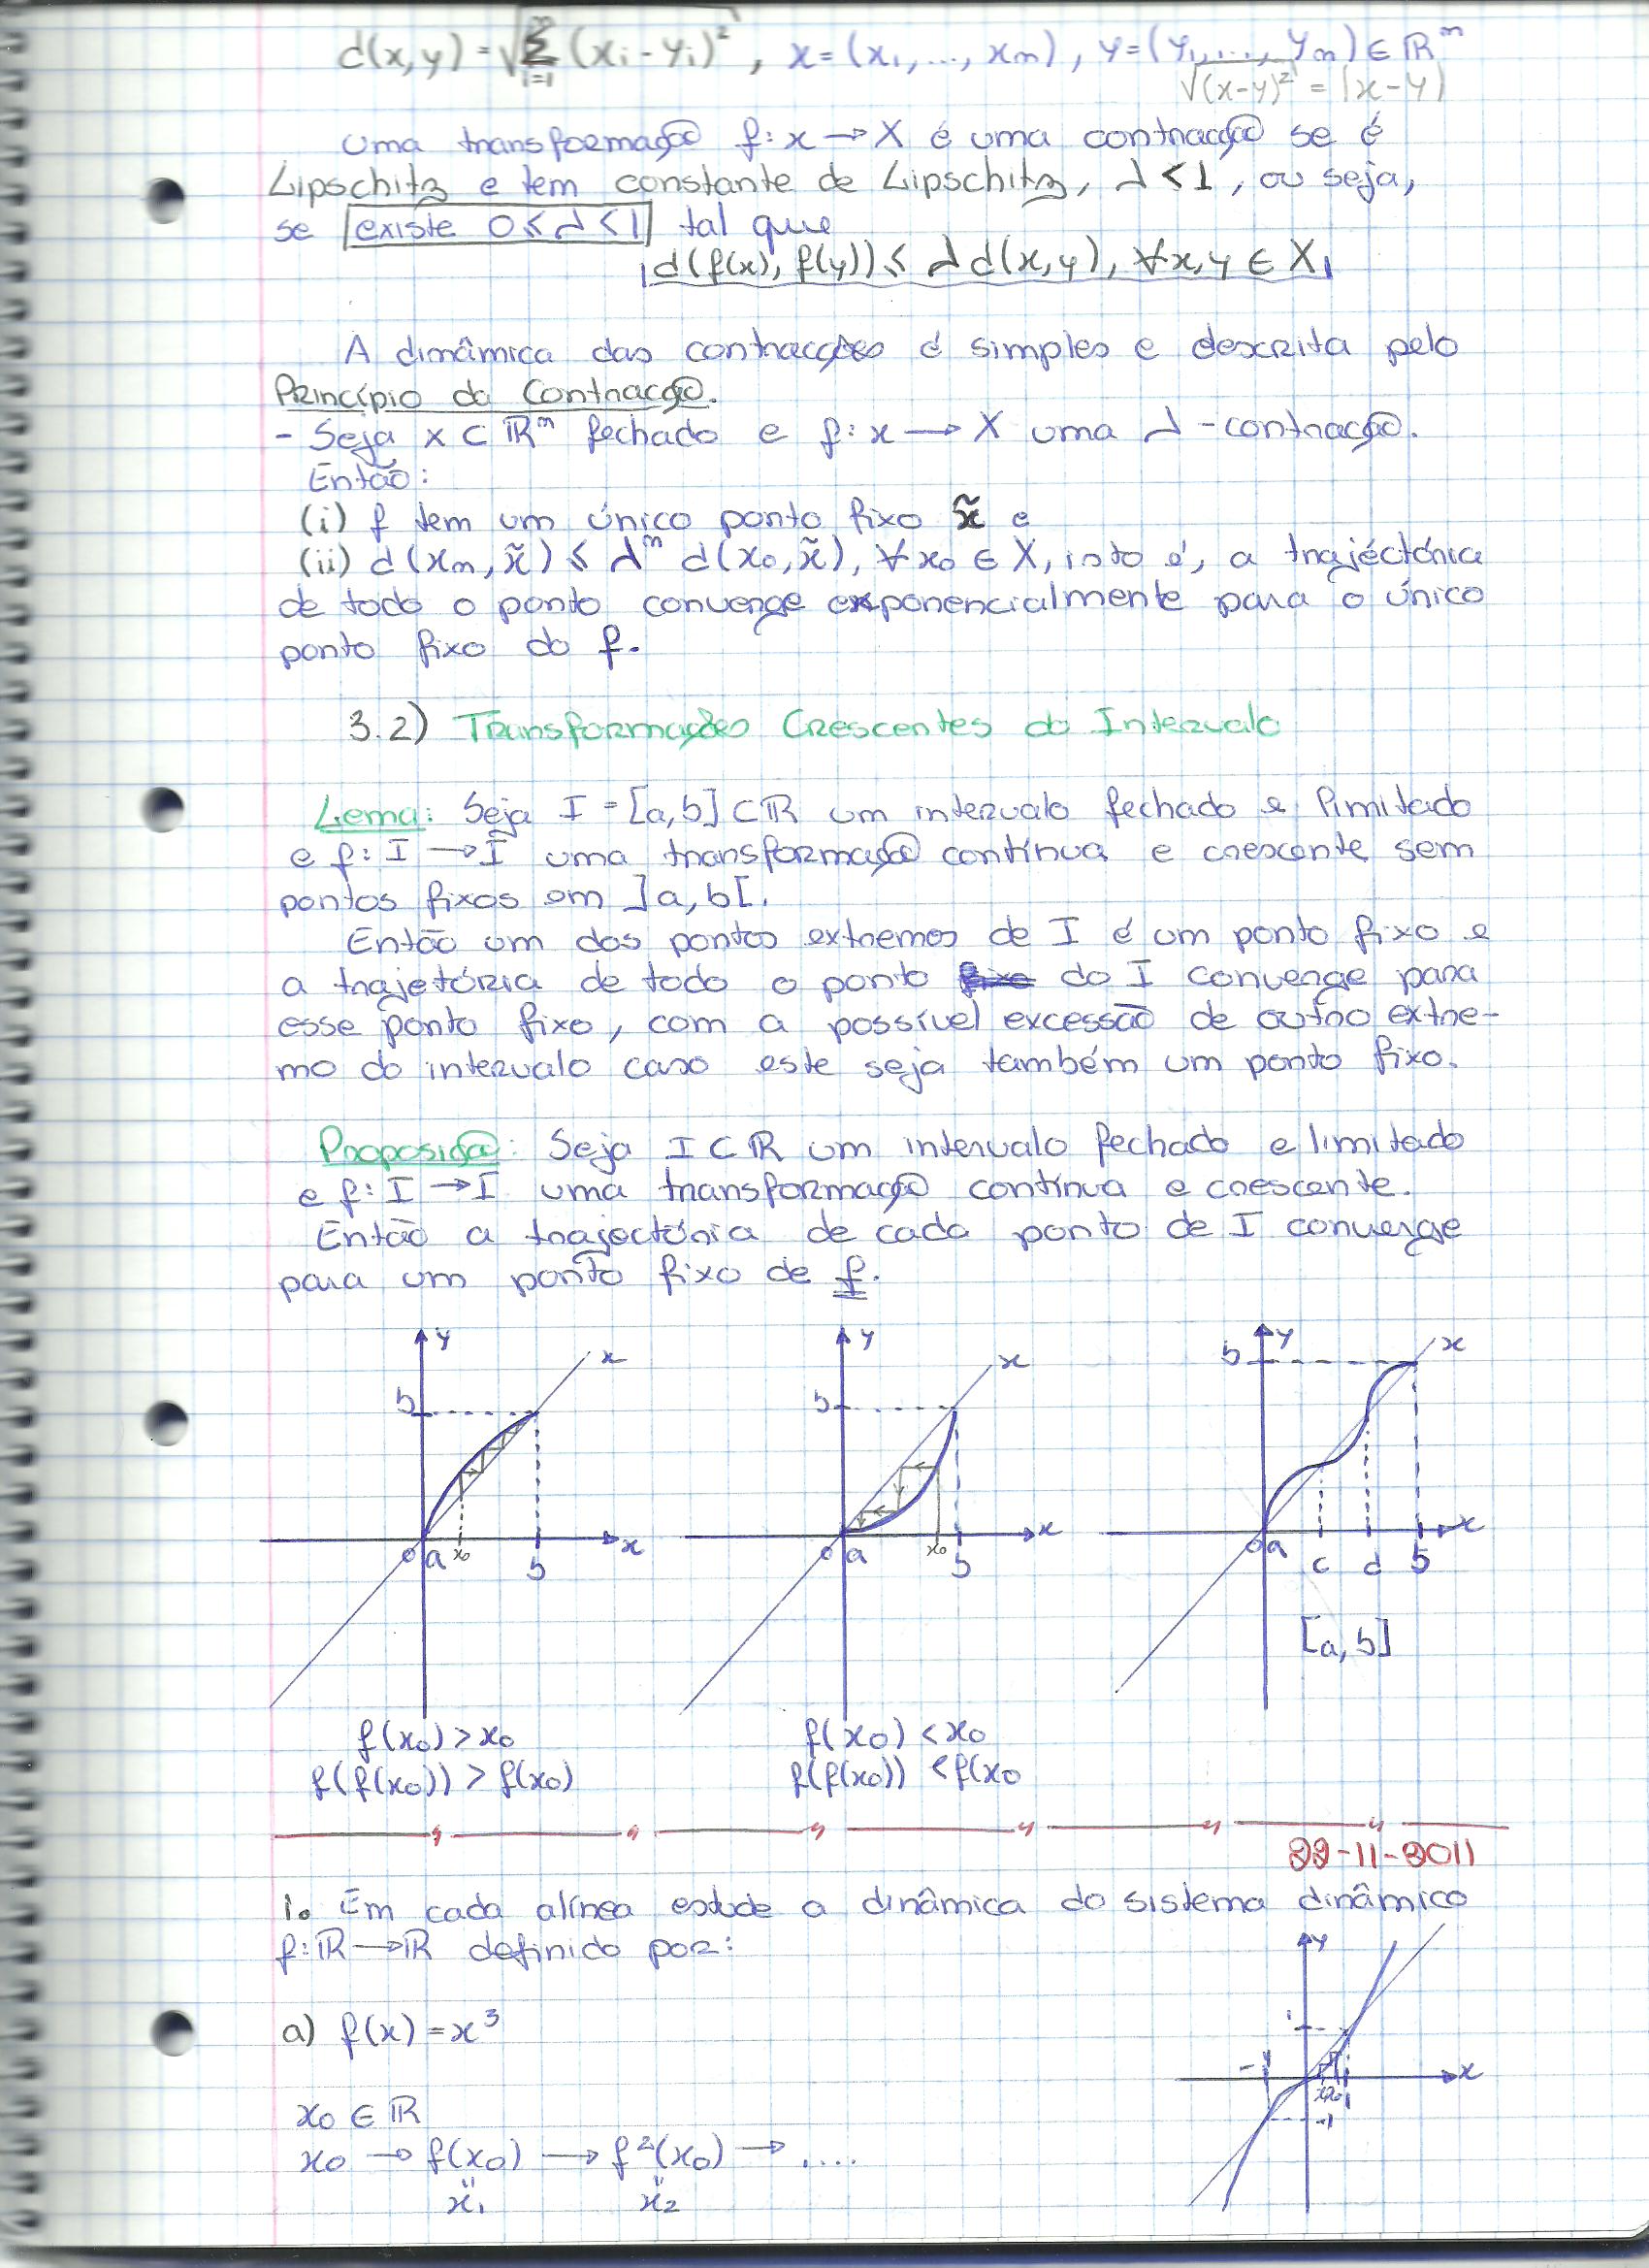 d(x,y) = √Σ_{i=1}^{m} (xi - yi)², x = (x1, ..., xm), y = (y1, ..., ym) ∈ ℝ^m
√(x-y)² = |x-y|
Uma transformação f: x → X é uma contracção se é
Lipschitz e tem constante de Lipschitz, λ < 1, ou seja,
se existe 0 ≤ λ < 1 tal que
d(f(x), f(y)) ≤ λ d(x,y), ∀x,y ∈ X
A dinâmica das contracções é simples e descrita pelo
Princípio da Contracção.
- Seja x ⊂ ℝ^m fechado e f: x → X uma λ-contracção.
Então:
(i) f tem um único ponto fixo x̃ e
(ii) d(xm, x̃) ≤ λ^m d(x0, x̃), ∀x0 ∈ X, isto é, a trajéctória
de todo o ponto converge exponencialmente para o único
ponto fixo do f.
3.2) Transformações Crescentes do Intervalo
Lema: Seja I = [a,b] ⊂ ℝ um intervalo fechado e limitado
e f: I → I uma transformação contínua e crescente sem
pontos fixos em ]a,b[.
Então um dos pontos extremos de I é um ponto fixo e
a trajetória de todo o ponto fixo do I converge para
esse ponto fixo, com a possível excessão de outro extre-
mo do intervalo caso este seja também um ponto fixo.
Proposição: Seja I ⊂ ℝ um intervalo fechado e limitado
e f: I → I uma transformação contínua e crescente.
Então a trajectória de cada ponto de I converge
para um ponto fixo de f.
y x b 0 a x0 b x
y x b 0 a x0 b x
y x b 0 a c d b x
[a,b]
f(x0) > x0
f(f(x0)) > f(x0)
f(x0) < x0
f(f(x0)) < f(x0
22-11-2011
1. Em cada alínea estude a dinâmica do sistema dinâmico
f: ℝ → ℝ definido por:
y 1 -1 x x0 1 -1
a) f(x) = x³
x0 ∈ ℝ
x0 → f(x0) → f²(x0) → ....
" "
x1 x2